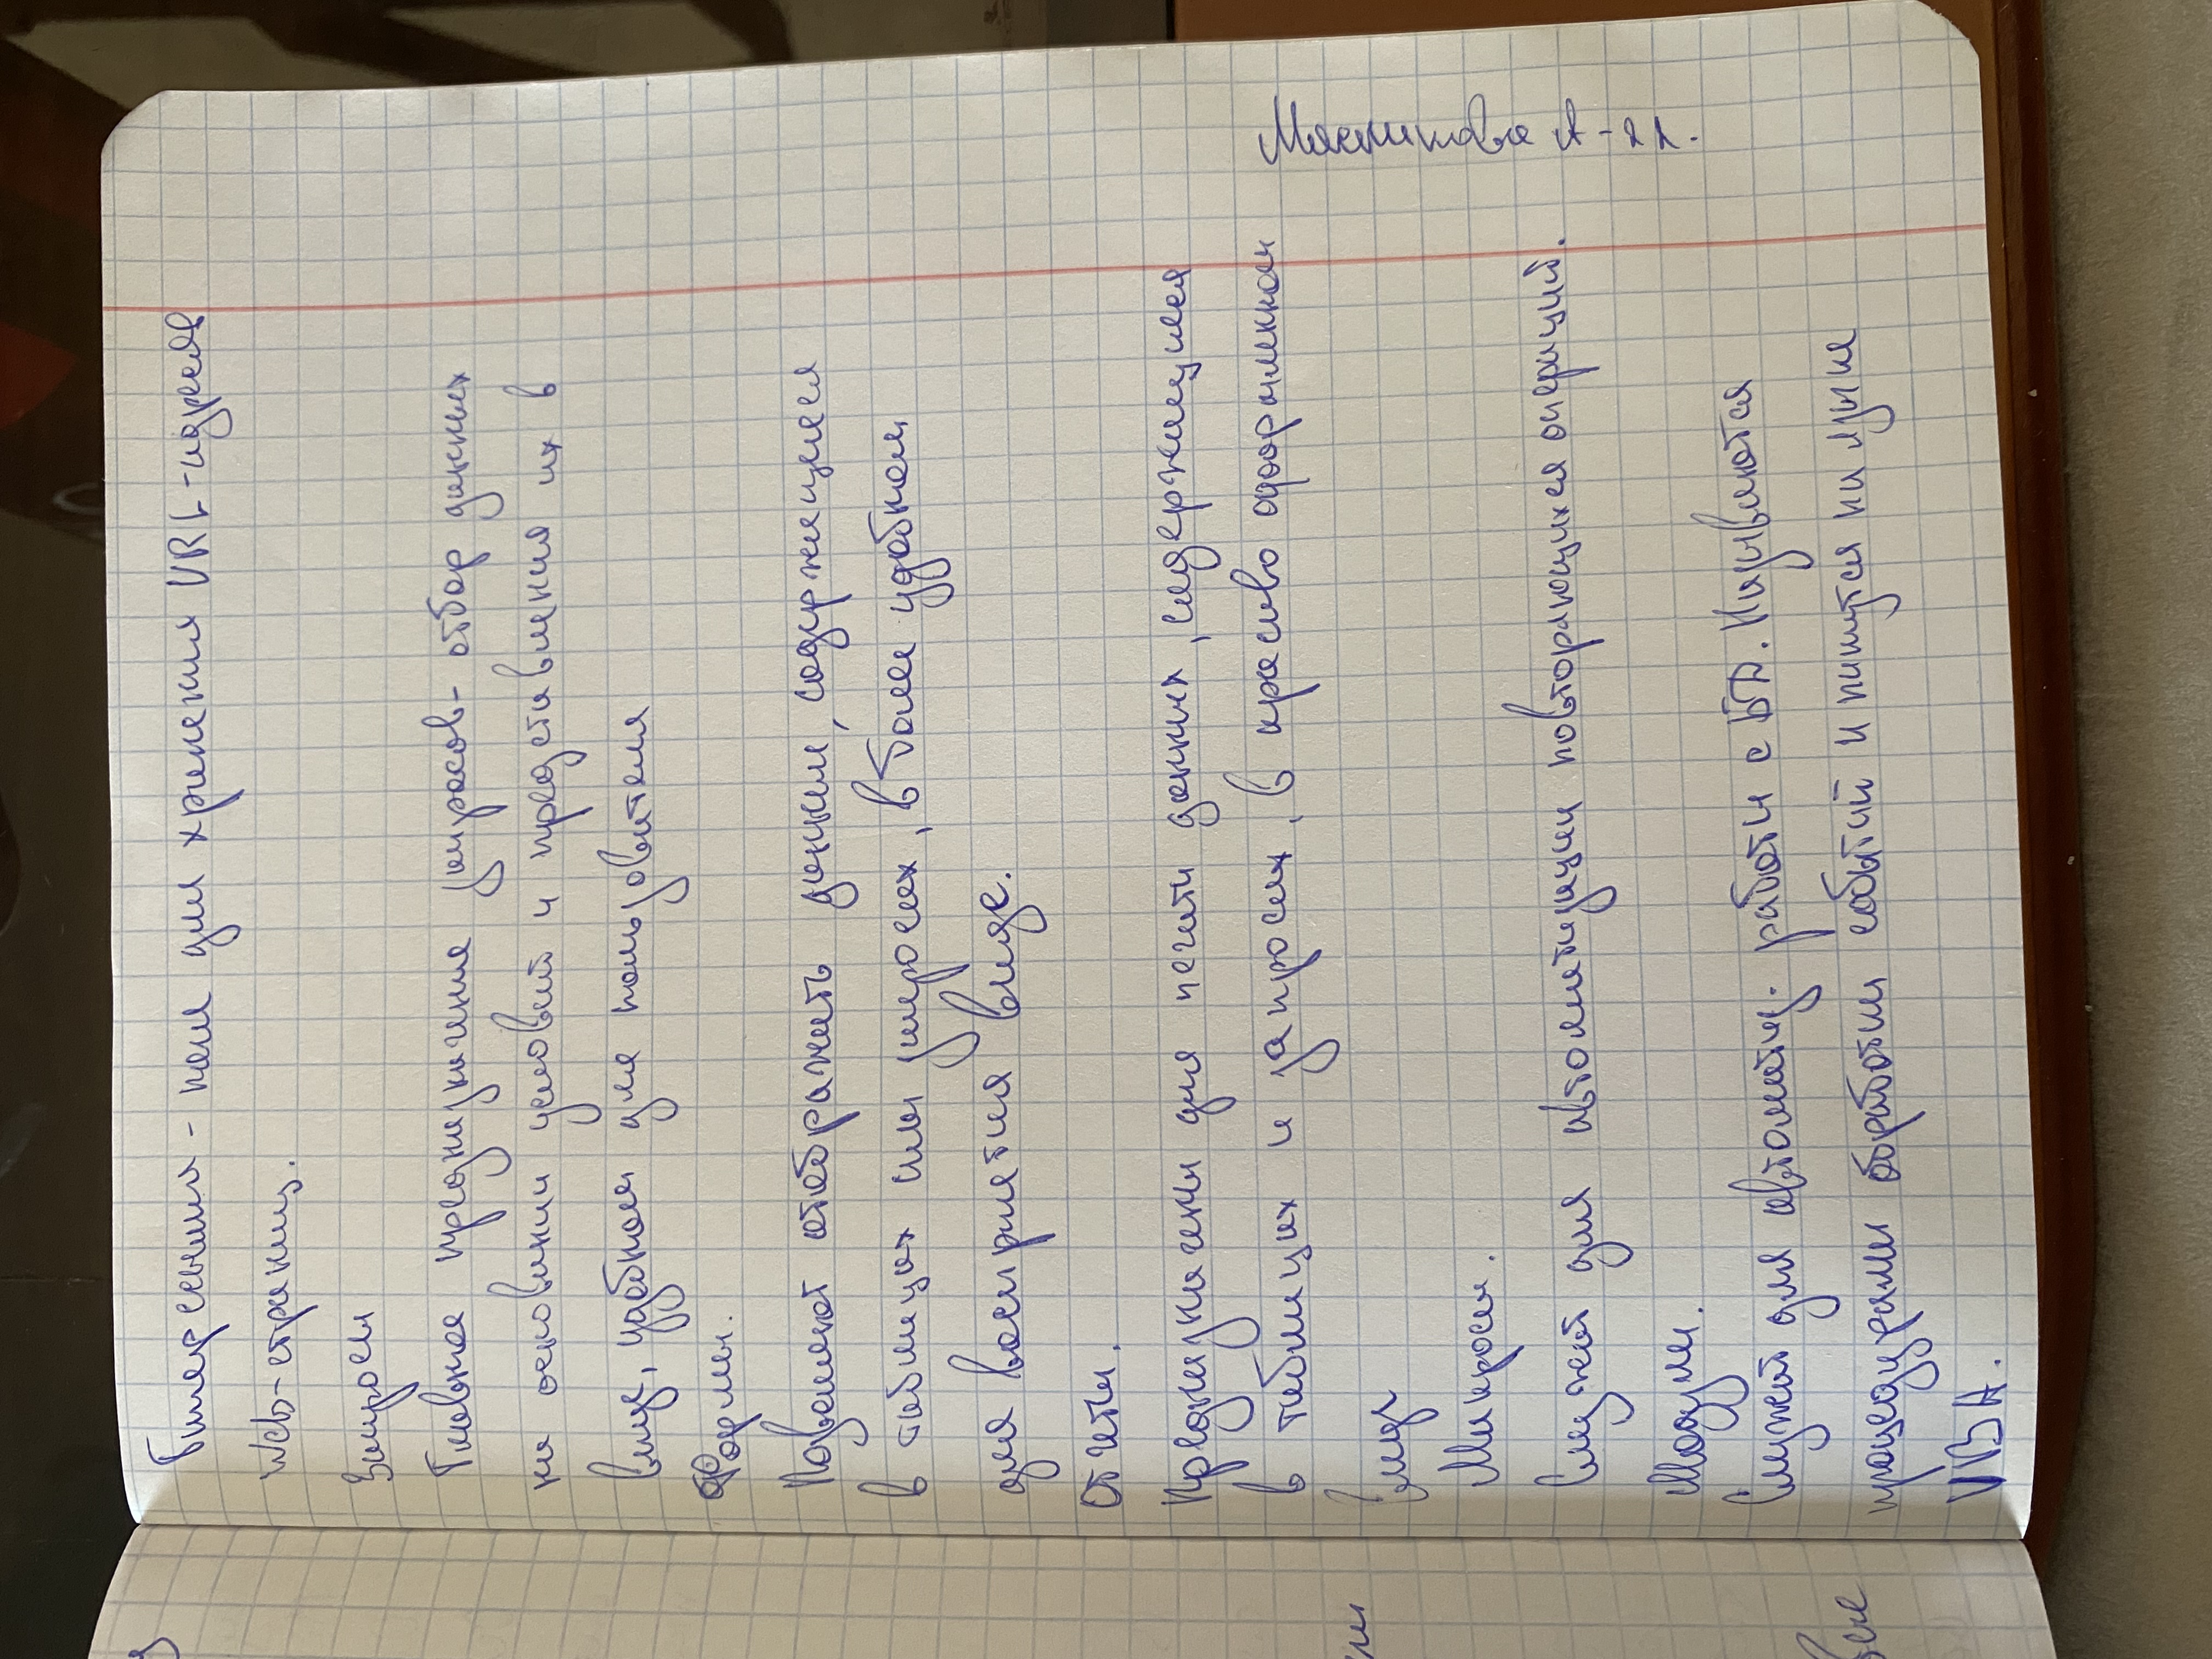 Гиперссылка - поле для хранения URL-адреса
Web-страниц.
Запросы
Главное предназначение запросов - отбор данных
на основании условий и предоставления их в
виде, удобном для пользователя
Формы.
Позволяют отображать данные, содержащиеся
в таблицах или запросах, в более удобном
для восприятия виде.
Отчеты.
Предназначены для печати данных, содержащихся
в таблицах и запросах, в красиво оформленном
виде
Макросы.
Служат для автоматизации повторяющихся операций.
Модули.
Служат для автоматиз. работы с БД. Называются
процедурами обработки событий и пишутся на языке
VBA.
Мясникова А-21.